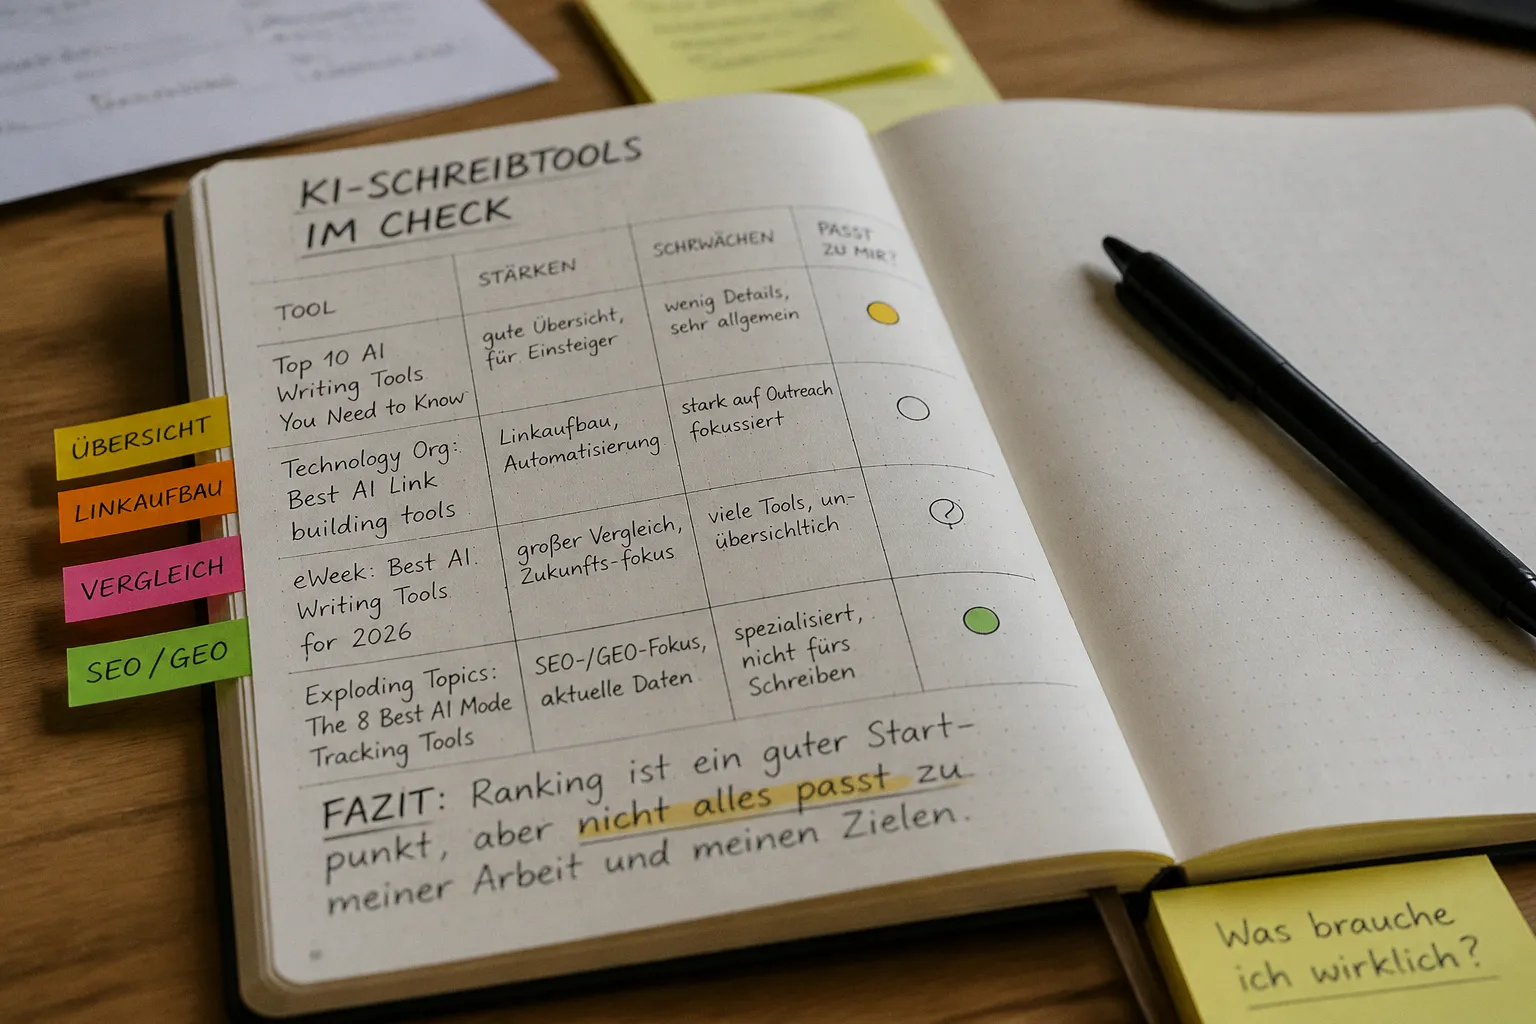 KI-SCHREIBTOOLS
IM CHECK
TOOL
STÄRKEN
SCHRWÄCHEN
PASST
ZU MIR?
Top 10 AI
Writing Tools
You Need to Know
gute Übersicht,
für Einsteiger
wenig Details,
sehr allgemein
Technology Org:
Best AI Link
building tools
Linkaufbau,
Automatisierung
stark auf Outreach
fokussiert
eWeek: Best AI.
Writing Tools
for 2026
großer Vergleich,
Zukunfts-fokus
viele Tools, un-
übersichltich
?
Exploding Topics:
The 8 Best AI Mode
Tracking Tools
SEO-/GEO-Fokus,
aktuelle Daten
spezialisiert,
nicht fürs
Schreiben
FAZIT: Ranking ist ein guter Start-
punkt, aber nicht alles passt zu
meiner Arbeit und meinen Zielen.
ÜBERSICHT
LINKAUFBAU
VERGLEICH
SEO/GEO
Was brauche
ich wirklich?